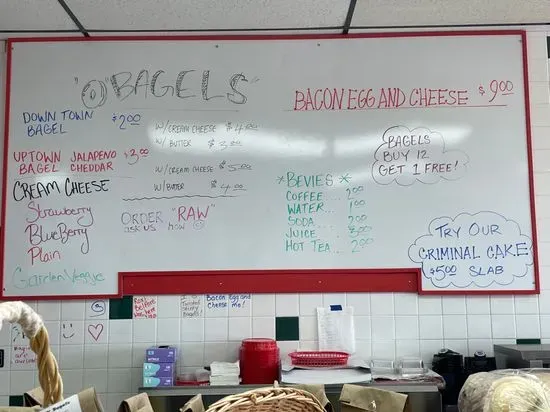 "O" BAGELS"
DOWN TOWN BAGEL $2.00
W/CREAM CHEESE $4.00
W/BUTTER $3.00
UPTOWN JALAPENO BAGEL CHEDDAR $3.00
W/CREAM CHEESE $5.00
W/BUTTER $4.00
CREAM CHEESE
Strawberry
BlueBerry
Plain
Garden Veggie
ORDER "RAW"
ask us how
BACON EGG AND CHEESE $9.00
BAGELS
BUY 12
GET 1 FREE!
*BEVIES*
COFFEE... 2.00
WATER... 1.00
SODA... 2.00
JUICE... 3.00
HOT TEA.. 2.00
TRY OUR
CRIMINAL CAKE
$5.00 SLAB
Bacon Egg and
Cheese me!